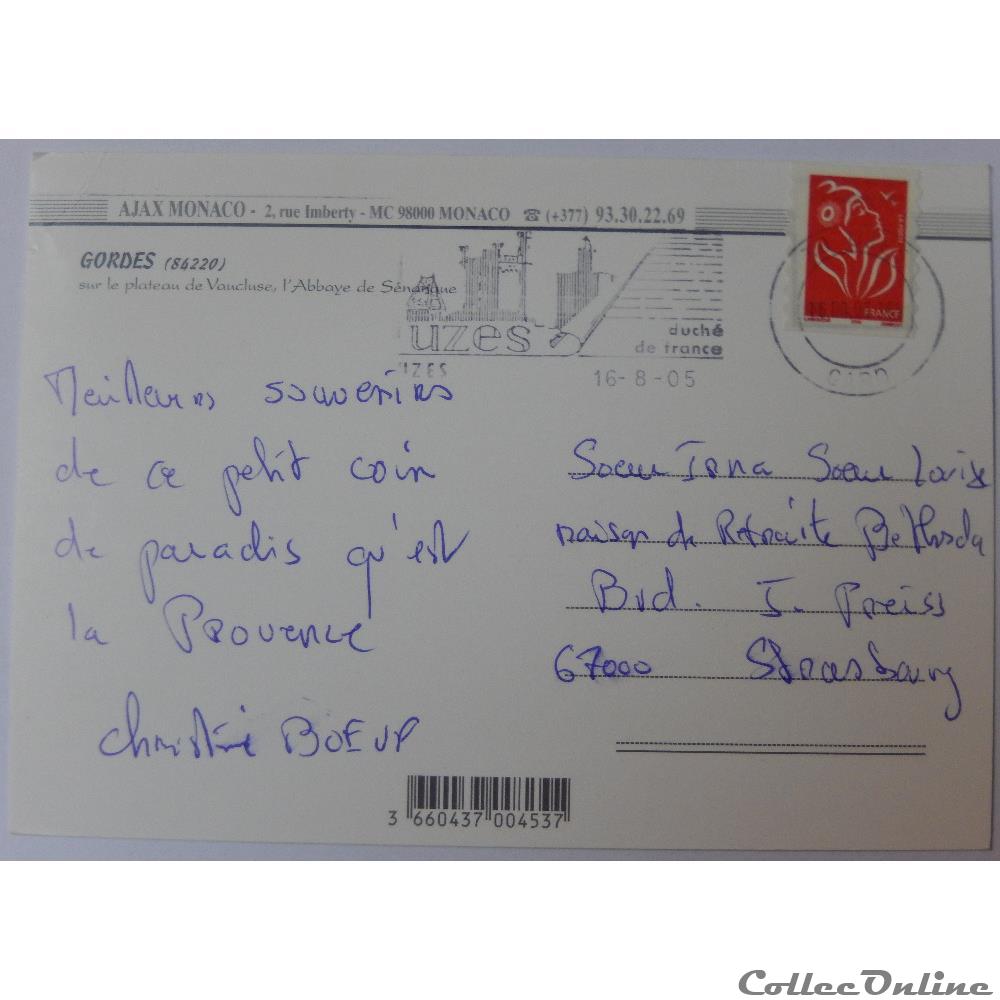 AJAX MONACO - 2, rue Imberty - MC 98000 MONACO ☎ (+377) 93.30.22.69
GORDES (84220)
sur le plateau de Vaucluse, l'Abbaye de Sénanque
uzes
duché
de france
UZES
16-8-05
LA POSTE
FRANCE
Meilleurs souvenirs
de ce petit coin
de paradis qu'est
la Provence
Christine
Soeur Soeur Louise
maison de Retraite Bethesda
Bvd. J. Preiss
67000 Strasbourg
3 660437 004537
CollecOnline